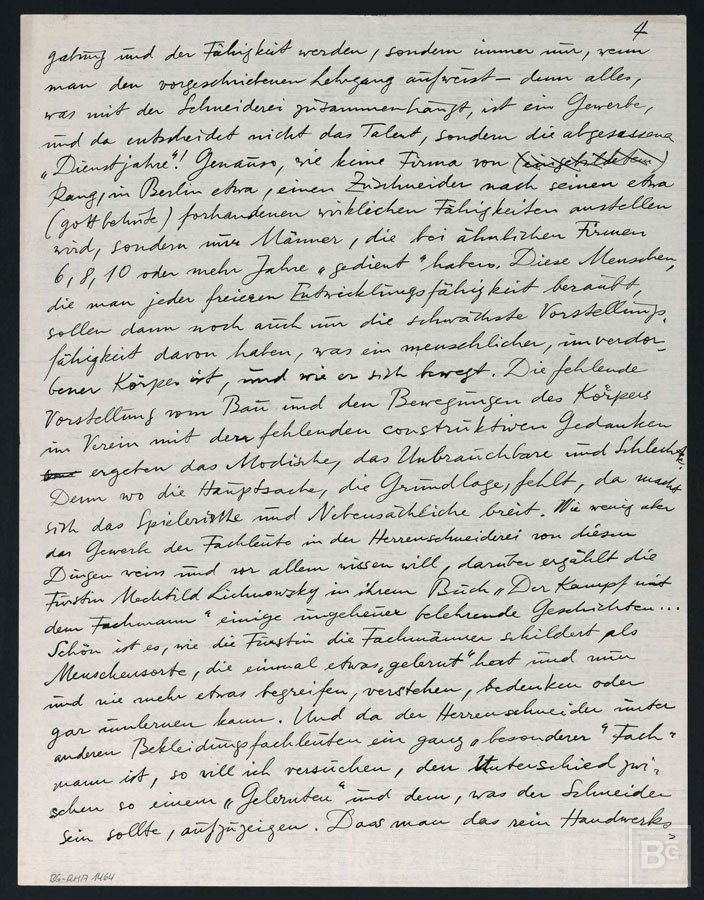 4
gabung und der Fähigkeit werden, sondern immer nur, wenn
man den vorgeschriebenen Lehrgang aufweist – denn alles,
was mit der Schneiderei zusammenhängt, ist ein Gewerbe,
und da entscheidet nicht das Talent, sondern die abgesessene
„Dienstjahre“! Genauso, wie keine Firma von (eingebildetem)
Rang, in Berlin etwa, einen Zuschneider nach seinen etwa
(gottbehüte) forhandenen wirklichen Fähigkeiten anstellen
wird, sondern nur Männer, die bei ähnlichen Firmen
6, 8, 10 oder mehr Jahre „gedient“ haben. Diese Menschen,
die man jeder freieren Entwicklungsfähigkeit beraubt,
sollen dann noch auch nur die schwächste Vorstellungs-
fähigkeit davon haben, was ein menschlicher, unverdor-
bener Körper ist, und wie er sich bewegt. Die fehlende
Vorstellung vom Bau und den Bewegungen des Körpers
im Verein mit dem fehlenden construktiven Gedanken
ergeben das Modische, das Unbrauchbare und Schlechte.
Denn wo die Hauptsache, die Grundlage, fehlt, da macht
sich das Spielerische und Nebensächliche breit. Wie wenig aber
das Gewerk der Fachleute in der Herrenschneiderei von diesen
Dingen weiss und vor allem wissen will, darüber erzählt die
Fürstin Mechtild Lichnowsky in ihrem Buch „Der Kampf mit
dem Fachmann“ einige ungeheuer belehrende Geschichten...
Schön ist es, wie die Fürstin die Fachmänner schildert, als
Menschensorte, die einmal etwas „gelernt“ hat und nun
und nie mehr etwas begreifen, verstehen, bedenken oder
gar umlernen kann. Und da der Herrenschneider unter
anderen Bekleidungsfachleuten ein ganz „besonderer“ Fach-
mann ist, so will ich versuchen, den Unterschied zwi-
schen so einem „Gelernten“ und dem, was der Schneider
sein sollte, aufzuzeigen. Dass man das rein Handwerks-
BG-RHA 1464
BG